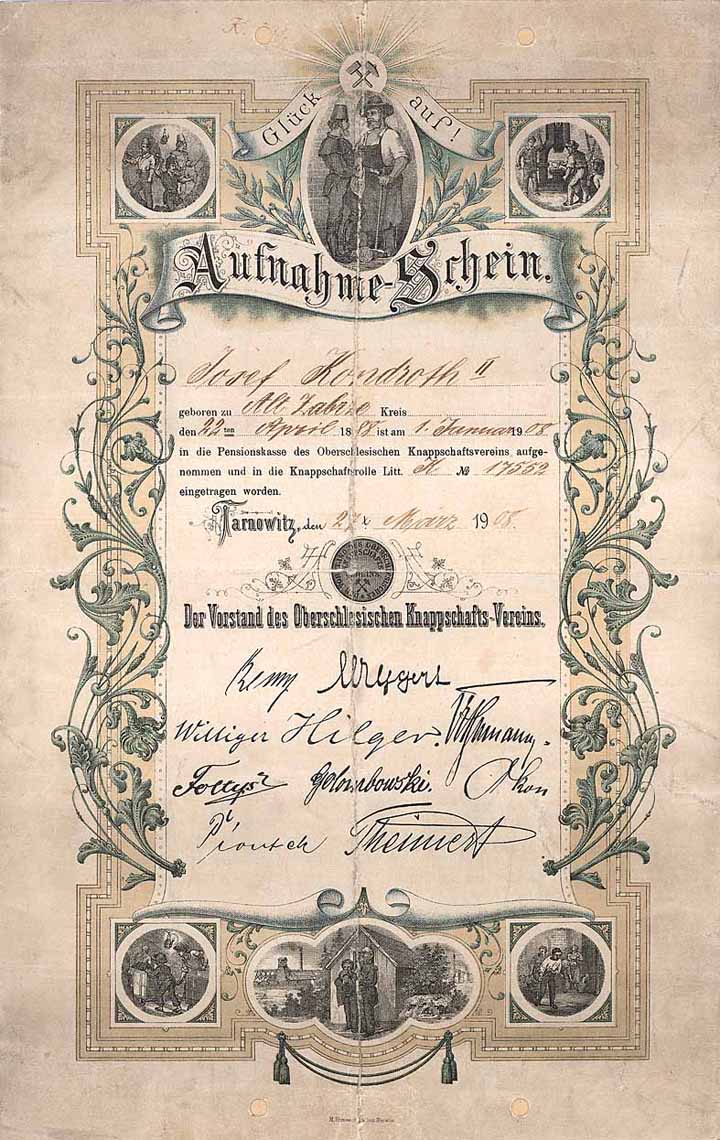 Glück auf!
Aufnahme-Schein.
Josef Kondroth II
geboren zu Alt Zabrze Kreis
den 22ten April 1888 ist am 1. Januar 1908
in die Pensionskasse des Oberschlesischen Knappschaftsvereins aufge-
nommen und in die Knappschaftsrolle Litt. K. No 17552
eingetragen worden.
Tarnowitz, den 27 März 1908.
Der Vorstand des Oberschlesischen Knappschafts-Vereins.
Remy
Williger Hilger.
Golombowski.
Theinert